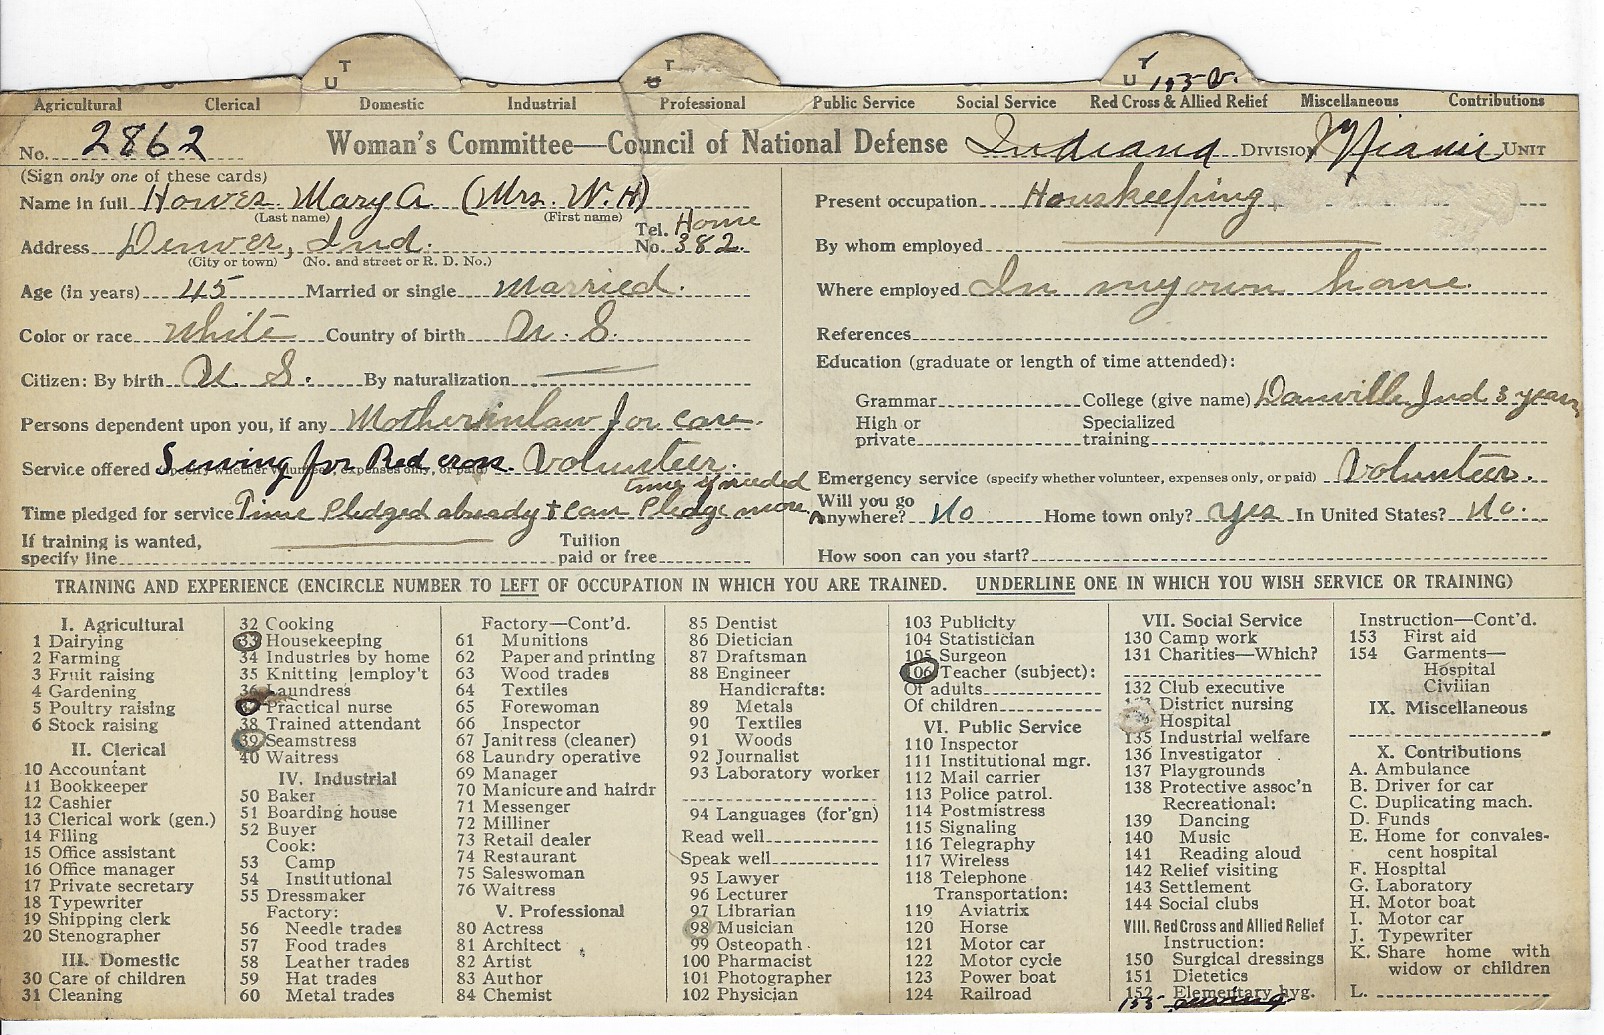 T
U
T
U
T
U 155 V.
Agricultural Clerical Domestic Industrial Professional Public Service Social Service Red Cross & Allied Relief Miscellaneous Contributions
No. 2862 Woman's Committee—Council of National Defense Indiana DIVISION Miami UNIT
(Sign only one of these cards)
Name in full Hower Mary A (Mrs. W. H)
(Last name) (First name)
Address Denver, Ind. Tel. No. Home 382.
(City or town) (No. and street or R. D. No.)
Age (in years) 45 Married or single Married.
Color or race White Country of birth U. S.
Citizen: By birth U. S. By naturalization
Persons dependent upon you, if any Motherinlaw for care
Service offered Sewing for Red cross. Volunteer.
(specify whether volunteer, expenses only, or paid)
time if needed
Time pledged for service Time Pledged already + can Pledge more
If training is wanted, specify line Tuition paid or free
Present occupation Houskeeping
By whom employed
Where employed In my own home.
References
Education (graduate or length of time attended):
Grammar College (give name) Danville Ind 3 years
High or private Specialized training
Emergency service (specify whether volunteer, expenses only, or paid) Volunteer.
Will you go anywhere? No Home town only? yes In United States? No.
How soon can you start?
TRAINING AND EXPERIENCE (ENCIRCLE NUMBER TO LEFT OF OCCUPATION IN WHICH YOU ARE TRAINED. UNDERLINE ONE IN WHICH YOU WISH SERVICE OR TRAINING)
I. Agricultural
1 Dairying
2 Farming
3 Fruit raising
4 Gardening
5 Poultry raising
6 Stock raising
II. Clerical
10 Accountant
11 Bookkeeper
12 Cashier
13 Clerical work (gen.)
14 Filing
15 Office assistant
16 Office manager
17 Private secretary
18 Typewriter
19 Shipping clerk
20 Stenographer
III. Domestic
30 Care of children
31 Cleaning
32 Cooking
33 Housekeeping
34 Industries by home
35 Knitting [employ't
36 Laundress
Practical nurse
38 Trained attendant
39 Seamstress
40 Waitress
IV. Industrial
50 Baker
51 Boarding house
52 Buyer
Cook:
53 Camp
54 Institutional
55 Dressmaker
Factory:
56 Needle trades
57 Food trades
58 Leather trades
59 Hat trades
60 Metal trades
Factory—Cont'd.
61 Munitions
62 Paper and printing
63 Wood trades
64 Textiles
65 Forewoman
66 Inspector
67 Janitress (cleaner)
68 Laundry operative
69 Manager
70 Manicure and hairdr
71 Messenger
72 Milliner
73 Retail dealer
74 Restaurant
75 Saleswoman
76 Waitress
V. Professional
80 Actress
81 Architect
82 Artist
83 Author
84 Chemist
85 Dentist
86 Dietician
87 Draftsman
88 Engineer
Handicrafts:
89 Metals
90 Textiles
91 Woods
92 Journalist
93 Laboratory worker
94 Languages (for'gn)
Read well
Speak well
95 Lawyer
96 Lecturer
97 Librarian
98 Musician
99 Osteopath
100 Pharmacist
101 Photographer
102 Physician
103 Publicity
104 Statistician
105 Surgeon
106 Teacher (subject):
Of adults
Of children
VI. Public Service
110 Inspector
111 Institutional mgr.
112 Mail carrier
113 Police patrol.
114 Postmistress
115 Signaling
116 Telegraphy
117 Wireless
118 Telephone
Transportation:
119 Aviatrix
120 Horse
121 Motor car
122 Motor cycle
123 Power boat
124 Railroad
VII. Social Service
130 Camp work
131 Charities—Which?
132 Club executive
District nursing
Hospital
135 Industrial welfare
136 Investigator
137 Playgrounds
138 Protective assoc'n
Recreational:
139 Dancing
140 Music
141 Reading aloud
142 Relief visiting
143 Settlement
144 Social clubs
VIII. Red Cross and Allied Relief
Instruction:
150 Surgical dressings
151 Dietetics
152 Elementary hyg.
155 sewing
Instruction—Cont'd.
153 First aid
154 Garments—
Hospital
Civilian
IX. Miscellaneous
X. Contributions
A. Ambulance
B. Driver for car
C. Duplicating mach.
D. Funds
E. Home for convales-
cent hospital
F. Hospital
G. Laboratory
H. Motor boat
I. Motor car
J. Typewriter
K. Share home with
widow or children
L.